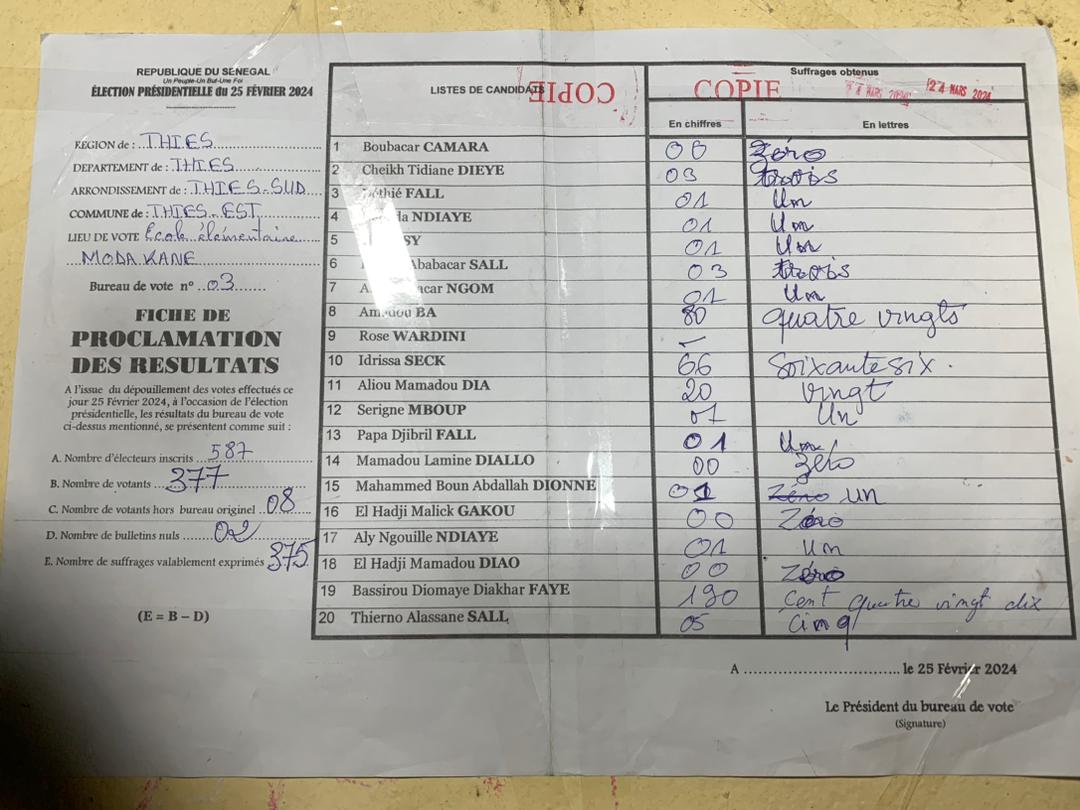 REPUBLIQUE DU SENEGAL
Un Peuple-Un But-Une Foi
ÉLECTION PRÉSIDENTIELLE du 25 FÉVRIER 2024
RÉGION de : THIES
DEPARTEMENT de : THIES
ARRONDISSEMENT de : THIES-SUD
COMMUNE de : THIES-EST
LIEU DE VOTE Ecole élémentaire
MODA KANE
Bureau de vote n° 03
FICHE DE
PROCLAMATION
DES RESULTATS
A l'issue du dépouillement des votes effectués ce
jour 25 Février 2024, à l'occasion de l'élection
présidentielle, les résultats du bureau de vote
ci-dessus mentionné, se présentent comme suit :
A. Nombre d'électeurs inscrits 587
B. Nombre de votants 377
C. Nombre de votants hors bureau originel 08
D. Nombre de bulletins nuls 02
E. Nombre de suffrages valablement exprimés 375
(E = B – D)
LISTES DE CANDIDATS
COPIE
COPIE
Suffrages obtenus
24 MARS 2024
En chiffres En lettres
1 Boubacar CAMARA 00 Zéro
2 Cheikh Tidiane DIEYE 03 trois
3 FALL 01 Un
4 NDIAYE 01 Un
5 SY 01 Un
6 Ababacar SALL 03 trois
7 NGOM 01 Un
8 Amadou BA 80 quatre vingts
9 Rose WARDINI
10 Idrissa SECK 66 Soixante six.
11 Aliou Mamadou DIA 20 vingt
12 Serigne MBOUP 01 Un
13 Papa Djibril FALL 01 Un
14 Mamadou Lamine DIALLO 00 zéro
15 Mahammed Boun Abdallah DIONNE 01 Zéro UN
16 El Hadji Malick GAKOU 00 Zéro
17 Aly Ngouille NDIAYE 01 Un
18 El Hadji Mamadou DIAO 00 Zéro
19 Bassirou Diomaye Diakhar FAYE 190 Cent quatre vingt dix
20 Thierno Alassane SALL 05 Cinq
A .................................. le 25 Février 2024
Le Président du bureau de vote
(Signature)